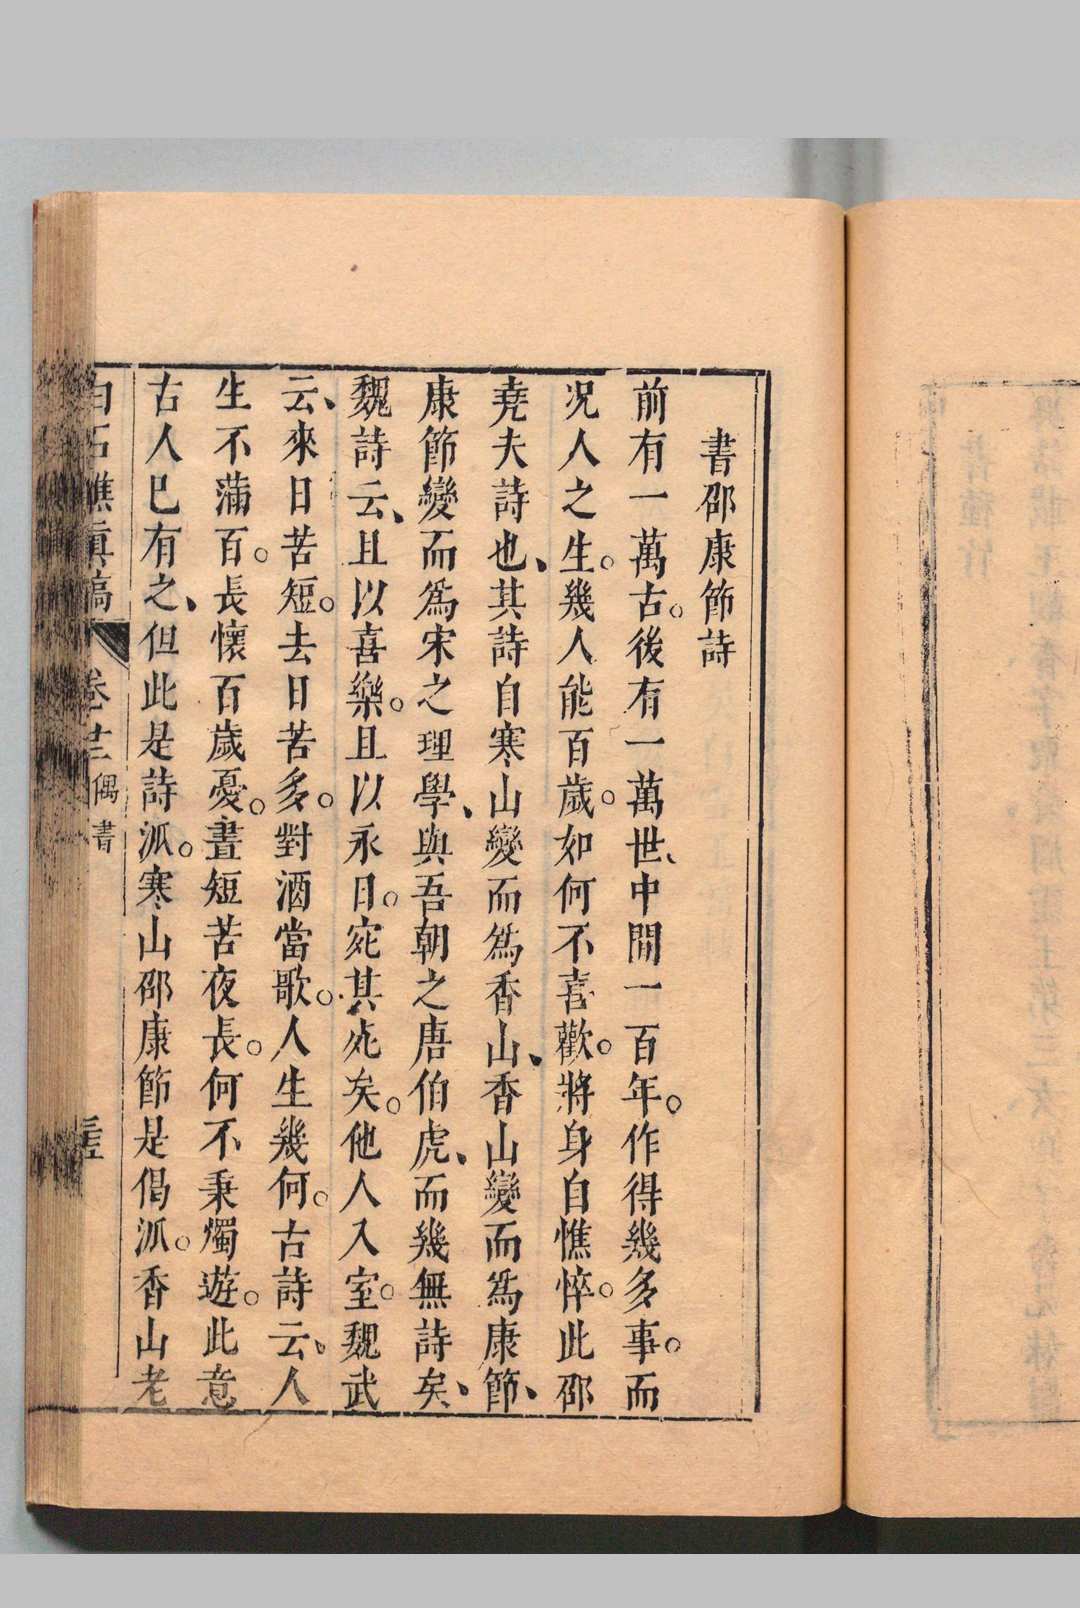 書邵康節詩
前有一萬古。後有一萬世、中間一百年。作得幾多事。而
況人之生。幾人能百歲。如何不喜歡。將身自憔悴。此邵
堯夫詩也、其詩自寒山變而爲香山、香山變而爲康節、
康節變而爲宋之理學、與吾朝之唐伯虎、而幾無詩矣、
魏詩云、且以喜樂。且以永日。宛其死矣。他人入室。魏武
云、來日苦短。去日苦多。對酒當歌。人生幾何。古詩云、人
生不滿百。長懷百歲憂。晝短苦夜長。何不秉燭遊。此意
古人已有之、但此是詩派。寒山邵康節是偈派。香山老
白石樵眞稿 卷廿二 偶書